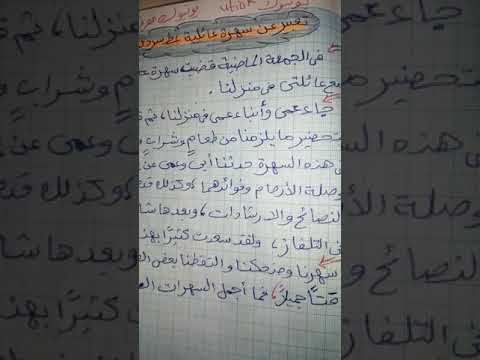 يوتيوب utiok يوتيوب
تعبير عن سهرة عائلية
في الجمعة الماضية قضيت سهرة
مع عائلتي في منزلنا.
جاء عمي وأبناء عمي في منزلنا، ثم
تحضير ما يلزمنا من طعامٍ وشرابٍ
في هذه السهرة حدثنا أبي وعمي عن
وصلة الأرحام وفوائدهما، وكذلك
النصائح والارشادات، وبعدها
في التلفاز، ولقد سعدت كثيرًا
سهرنا وضحكنا والتقطنا بعض
جميلاً، فما أجمل السهرات